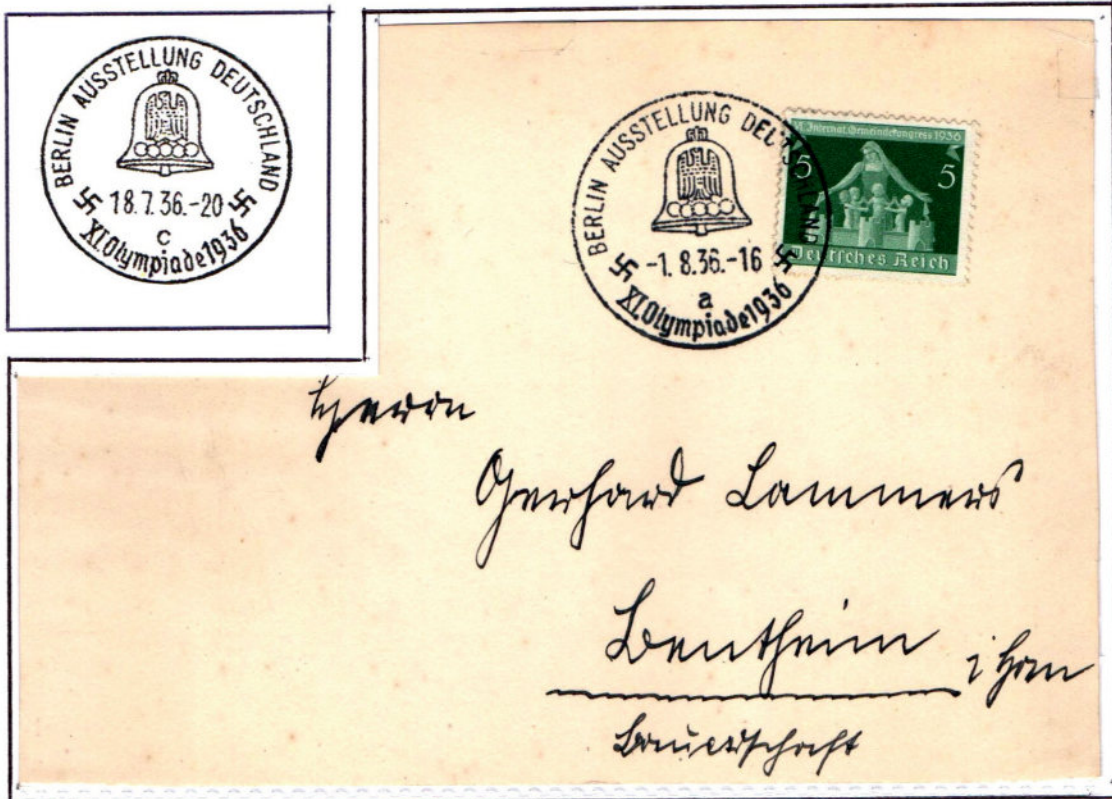 BERLIN AUSSTELLUNG DEUTSCHLAND
18.7.36.-20
c
XI.Olympiade1936
BERLIN AUSSTELLUNG DEUTSCHLAND
-1.8.36.-16
a
XI.Olympiade1936
Internat. Gemeindekongress 1936
5 5
Deutsches Reich
Herrn
Gerhard Lammers
Bentheim i Han
Bauerschaft